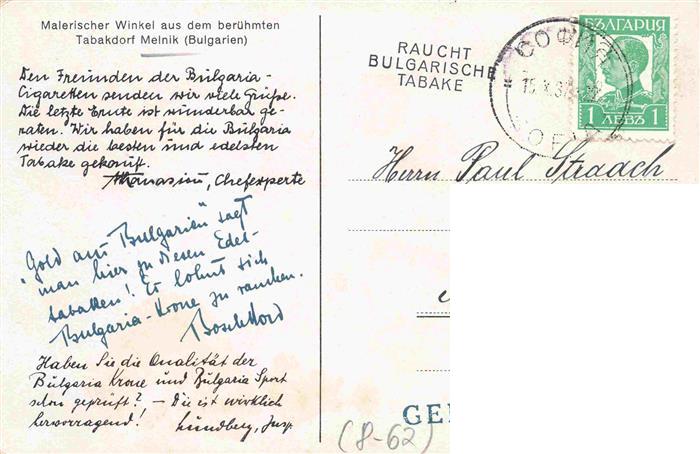 Malerischer Winkel aus dem berühmten
Tabakdorf Melnik (Bulgarien)
Den Freunden der Bulgaria-
Cigaretten senden wir viele Grüße.
Die letzte Ernte ist wunderbar ge-
raten. Wir haben für die Bulgaria
wieder die besten und edelsten
Tabake gekauft.
Athanasiu, Chefexperte
"Gold aus Bulgarien" sagt
man hier zu diesen Edel-
tabaken! Es lohnt sich
Bulgaria-Krone zu rauchen.
Haben Sie die Qualität der
Bulgaria Krone und Bulgaria Sport
schon geprüft? - Die ist wirklich
hervorragend! Lundberg, Insp.
RAUCHT
BULGARISCHE
TABAKE
СОФИЯ
SOFIA
БЪЛГАРИЯ
1 ЛЕВЪ 1
Herrn Paul Straach
GE
(8-62)